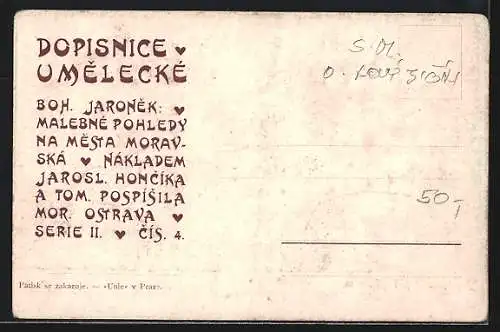 DOPISNICE ♥
UMĚLECKÉ
BOH. JARONĚK: ♥
MALEBNÉ POHLEDY
NA MĚSTA MORAV-
SKÁ ♥ NÁKLADEM
JAROSL. HONČÍKA
A TOM. POSPÍŠILA
MOR. OSTRAVA ♥
SERIE II. ♥ ČÍS. 4.
Patisk se zakazuje. — »Unie« v Praze.
S. M.
O.
50,-